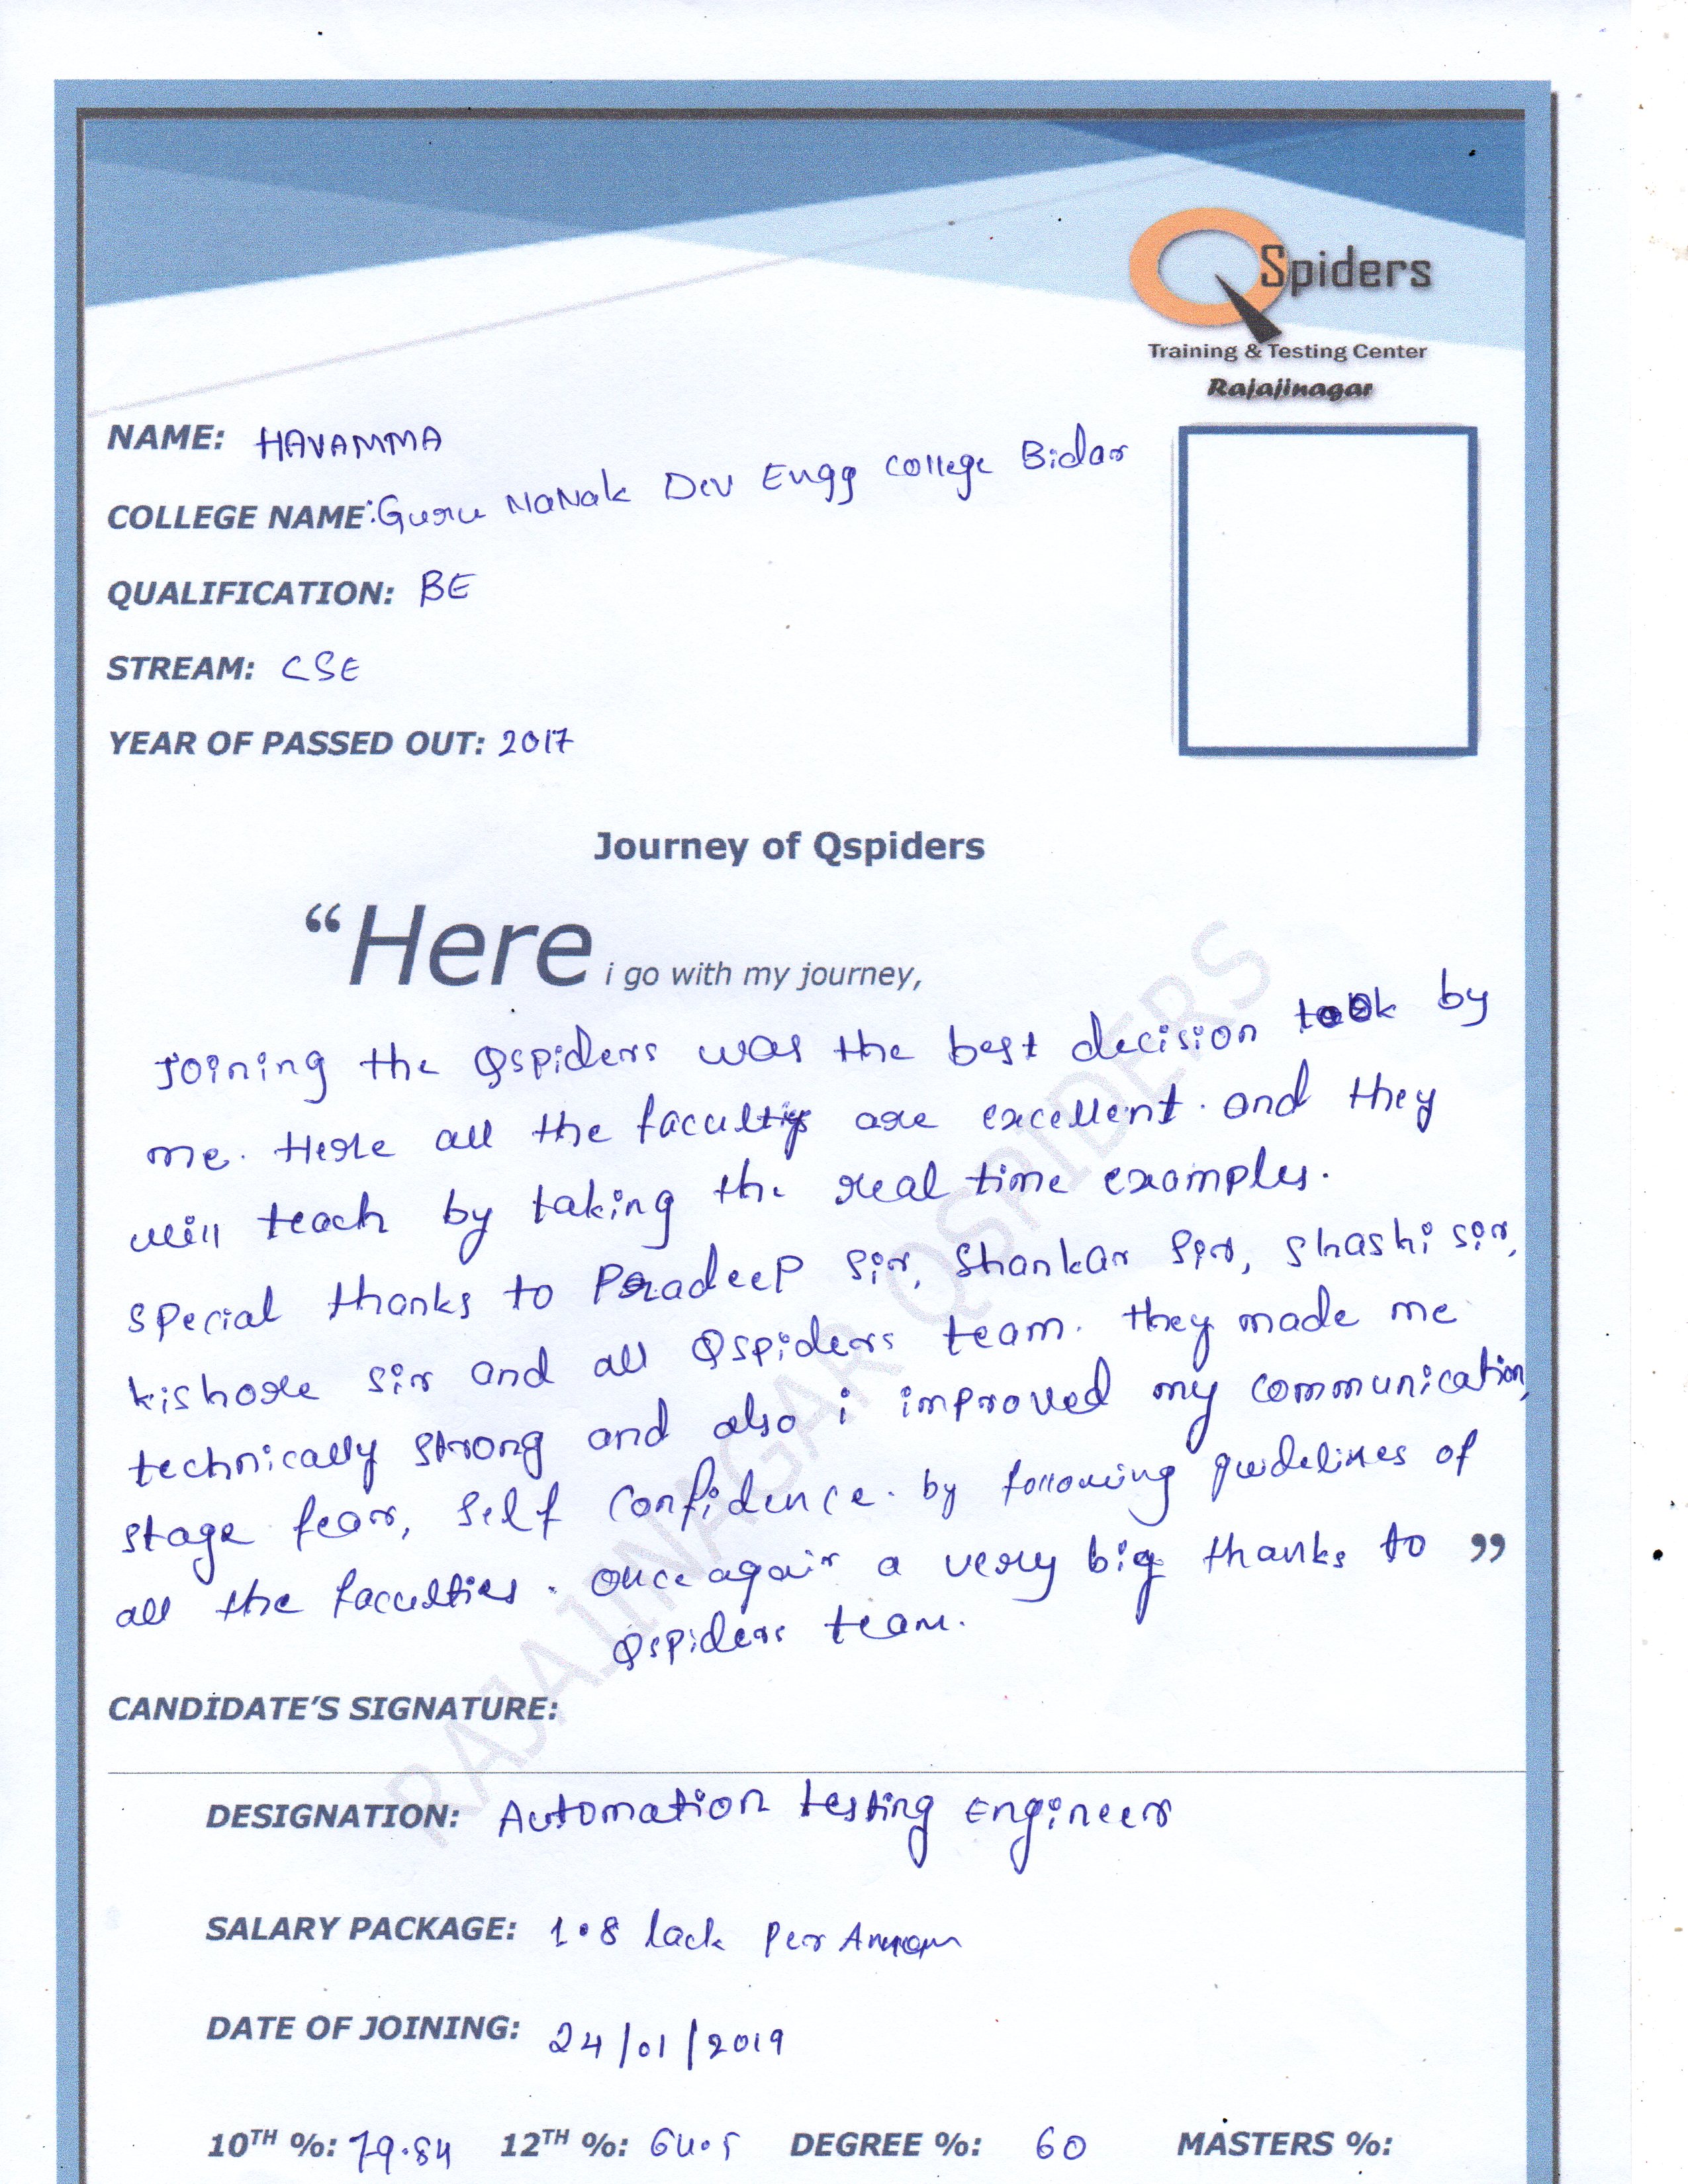 QSpiders
Training & Testing Center
Rajajinagar
NAME: HAVAMMA
COLLEGE NAME: Guru NaNak Dev Engg College Bidar
QUALIFICATION: BE
STREAM: CSE
YEAR OF PASSED OUT: 2017
Journey of Qspiders
“Here i go with my journey,
Joining the Qspiders was the best decision took by
me. Here all the faculty are excellent. and they
will teach by taking the real time examples.
special thanks to Pradeep sir, Shankar sir, Shashi sir,
kishore sir and all Qspiders team. they made me
technically strong and also i improved my communication,
stage fear, self confidence. by following guidelines of
all the faculties. Once again a very big thanks to ”
Qspiders team.
RAJAJINAGAR QSPIDERS
CANDIDATE’S SIGNATURE:
DESIGNATION: Automation testing Engineer
SALARY PACKAGE: 1.8 lack Per
DATE OF JOINING: 24/01/2019
10TH %: 79.84 12TH %: 64.5 DEGREE %: 60 MASTERS %: